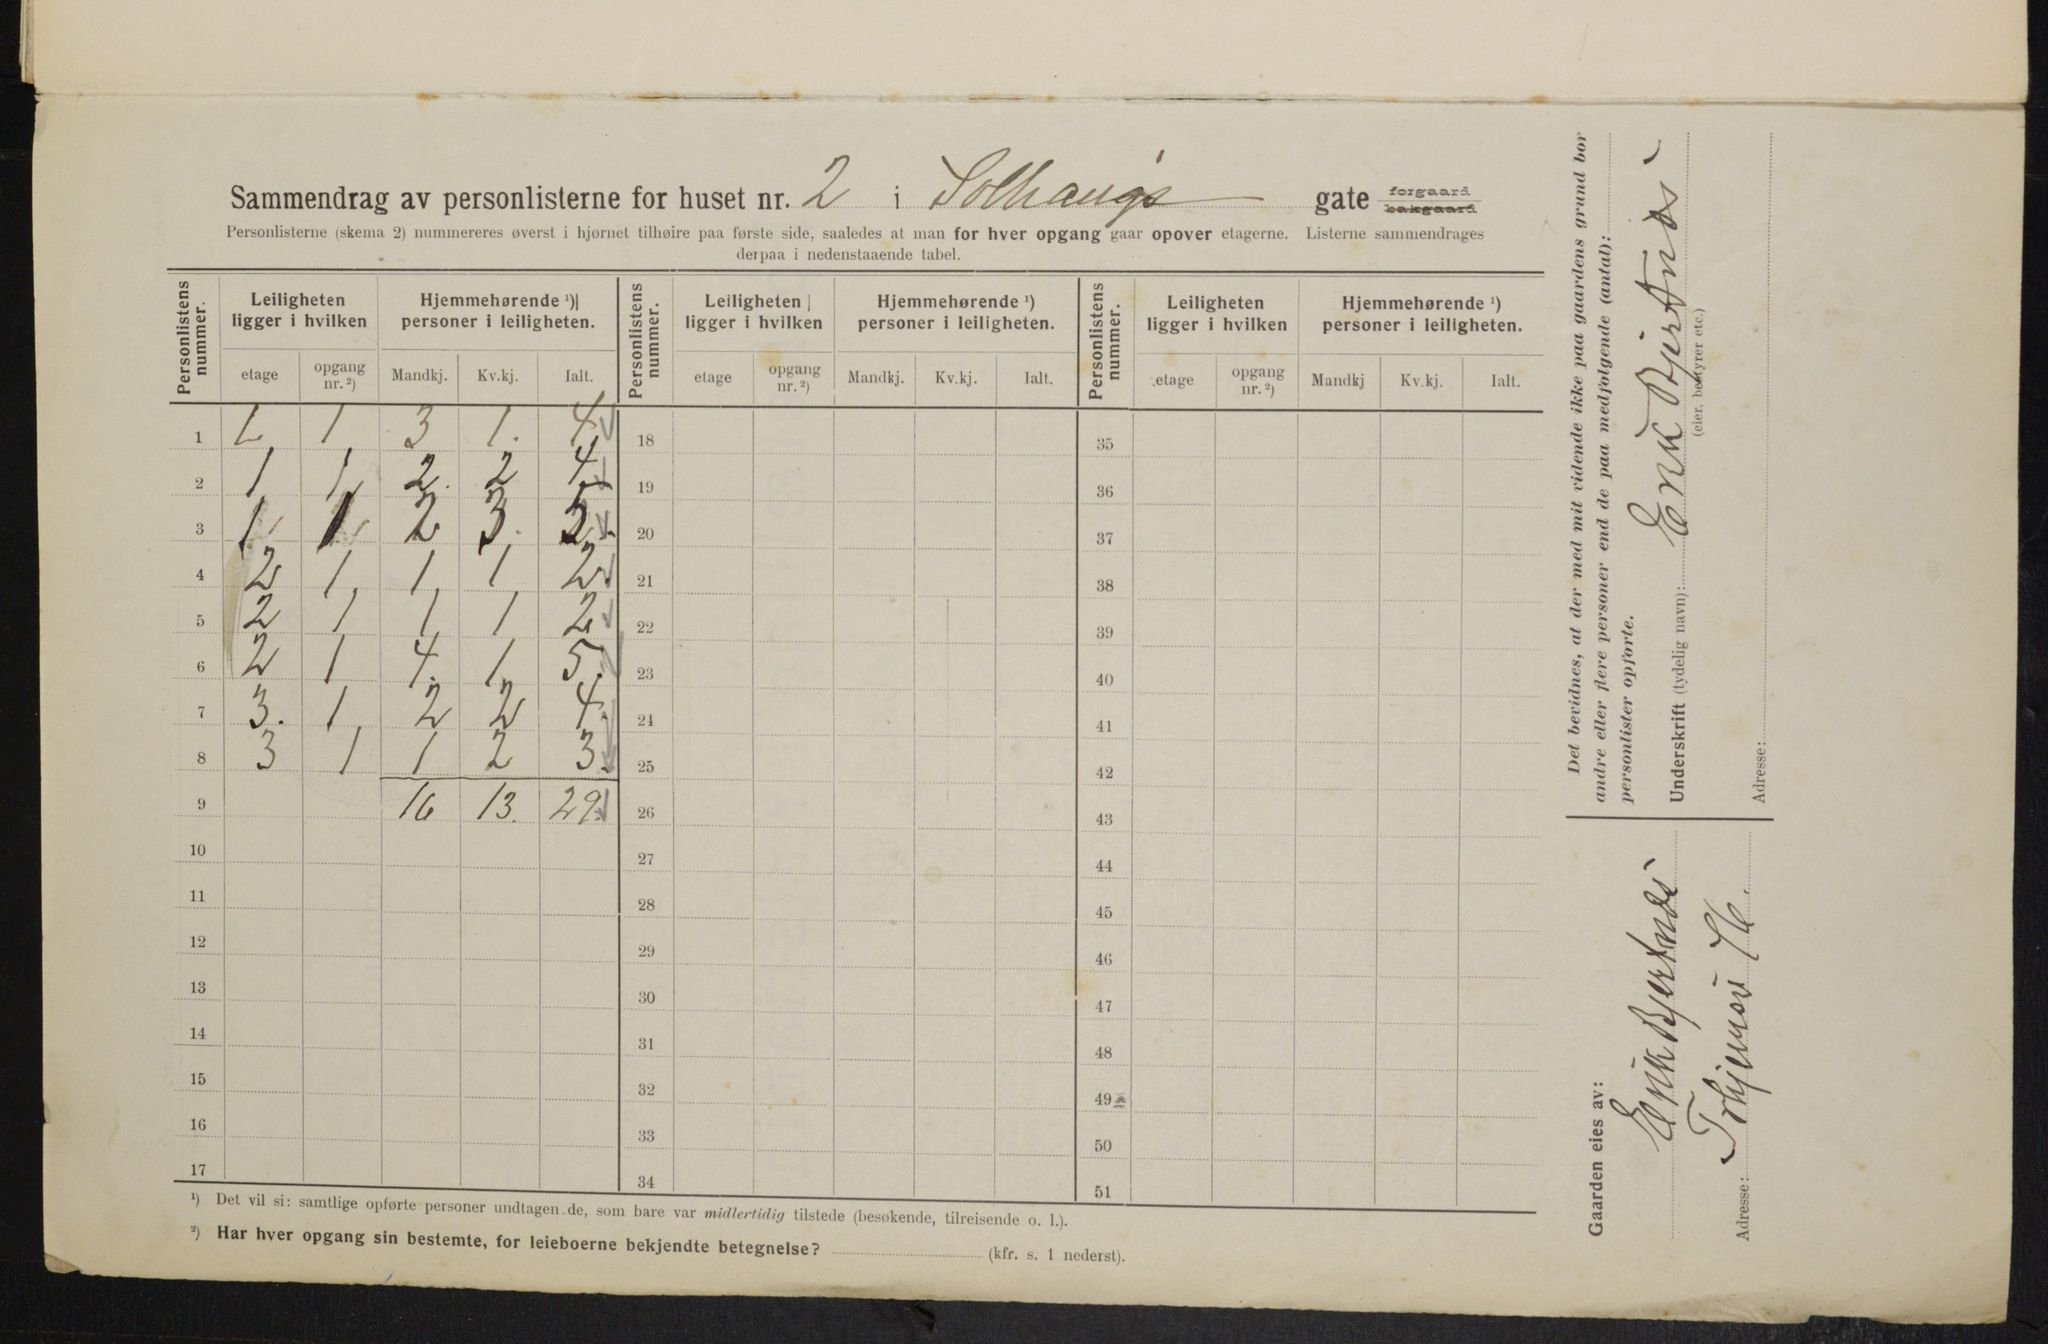 Sammendrag av personlisterne for huset nr. 2 i Solhaugs gate forgaard
bakgaard
Personlisterne (skema 2) nummereres øverst i hjørnet tilhøire paa første side, saaledes at man for hver opgang gaar opover etagerne. Listerne sammendrages
derpaa i nedenstaaende tabel.
Personlistens nummer. Leiligheten ligger i hvilken Hjemmehørende ¹) personer i leiligheten. Personlistens nummer. Leiligheten ligger i hvilken Hjemmehørende ¹) personer i leiligheten. Personlistens nummer. Leiligheten ligger i hvilken Hjemmehørende ¹) personer i leiligheten.
etage opgang nr. ²) Mandkj. Kv.kj. Ialt. etage opgang nr. ²) Mandkj. Kv.kj. Ialt. etage opgang nr. ²) Mandkj Kv.kj. Ialt.
1 1 3 1. 4 18 35
2 1 1 2. 2 4. 19 36
3 1 1 2 3. 5. 20 37
4 2 1 1 1 2. 21 38
5 2 1 1 1 2 22 39
6 2 1 4. 1 5. 23 40
7 3. 1 2 2 4. 24 41
8 3 1 1 2 3. 25 42
9 16 13. 29. 26 43
10 27 44
11 28 45
12 29 46
13 30 47
14 31 48
15 32 49
16 33 50
17 34 51
¹) Det vil si: samtlige opførte personer undtagen de, som bare var midlertidig tilstede (besøkende, tilreisende o. l.).
²) Har hver opgang sin bestemte, for leieboerne bekjendte betegnelse? (kfr. s. 1 nederst).
Det bevidnes, at der med mit vidende ikke paa gaardens grund bor
andre eller flere personer end de paa medfølgende (antal):
personlister opførte.
Underskrift (tydelig navn): Erik Bjertnæs
(eier, bestyrer etc.)
Adresse:
Gaarden eies av:
Erik Bjertnæs
Adresse: